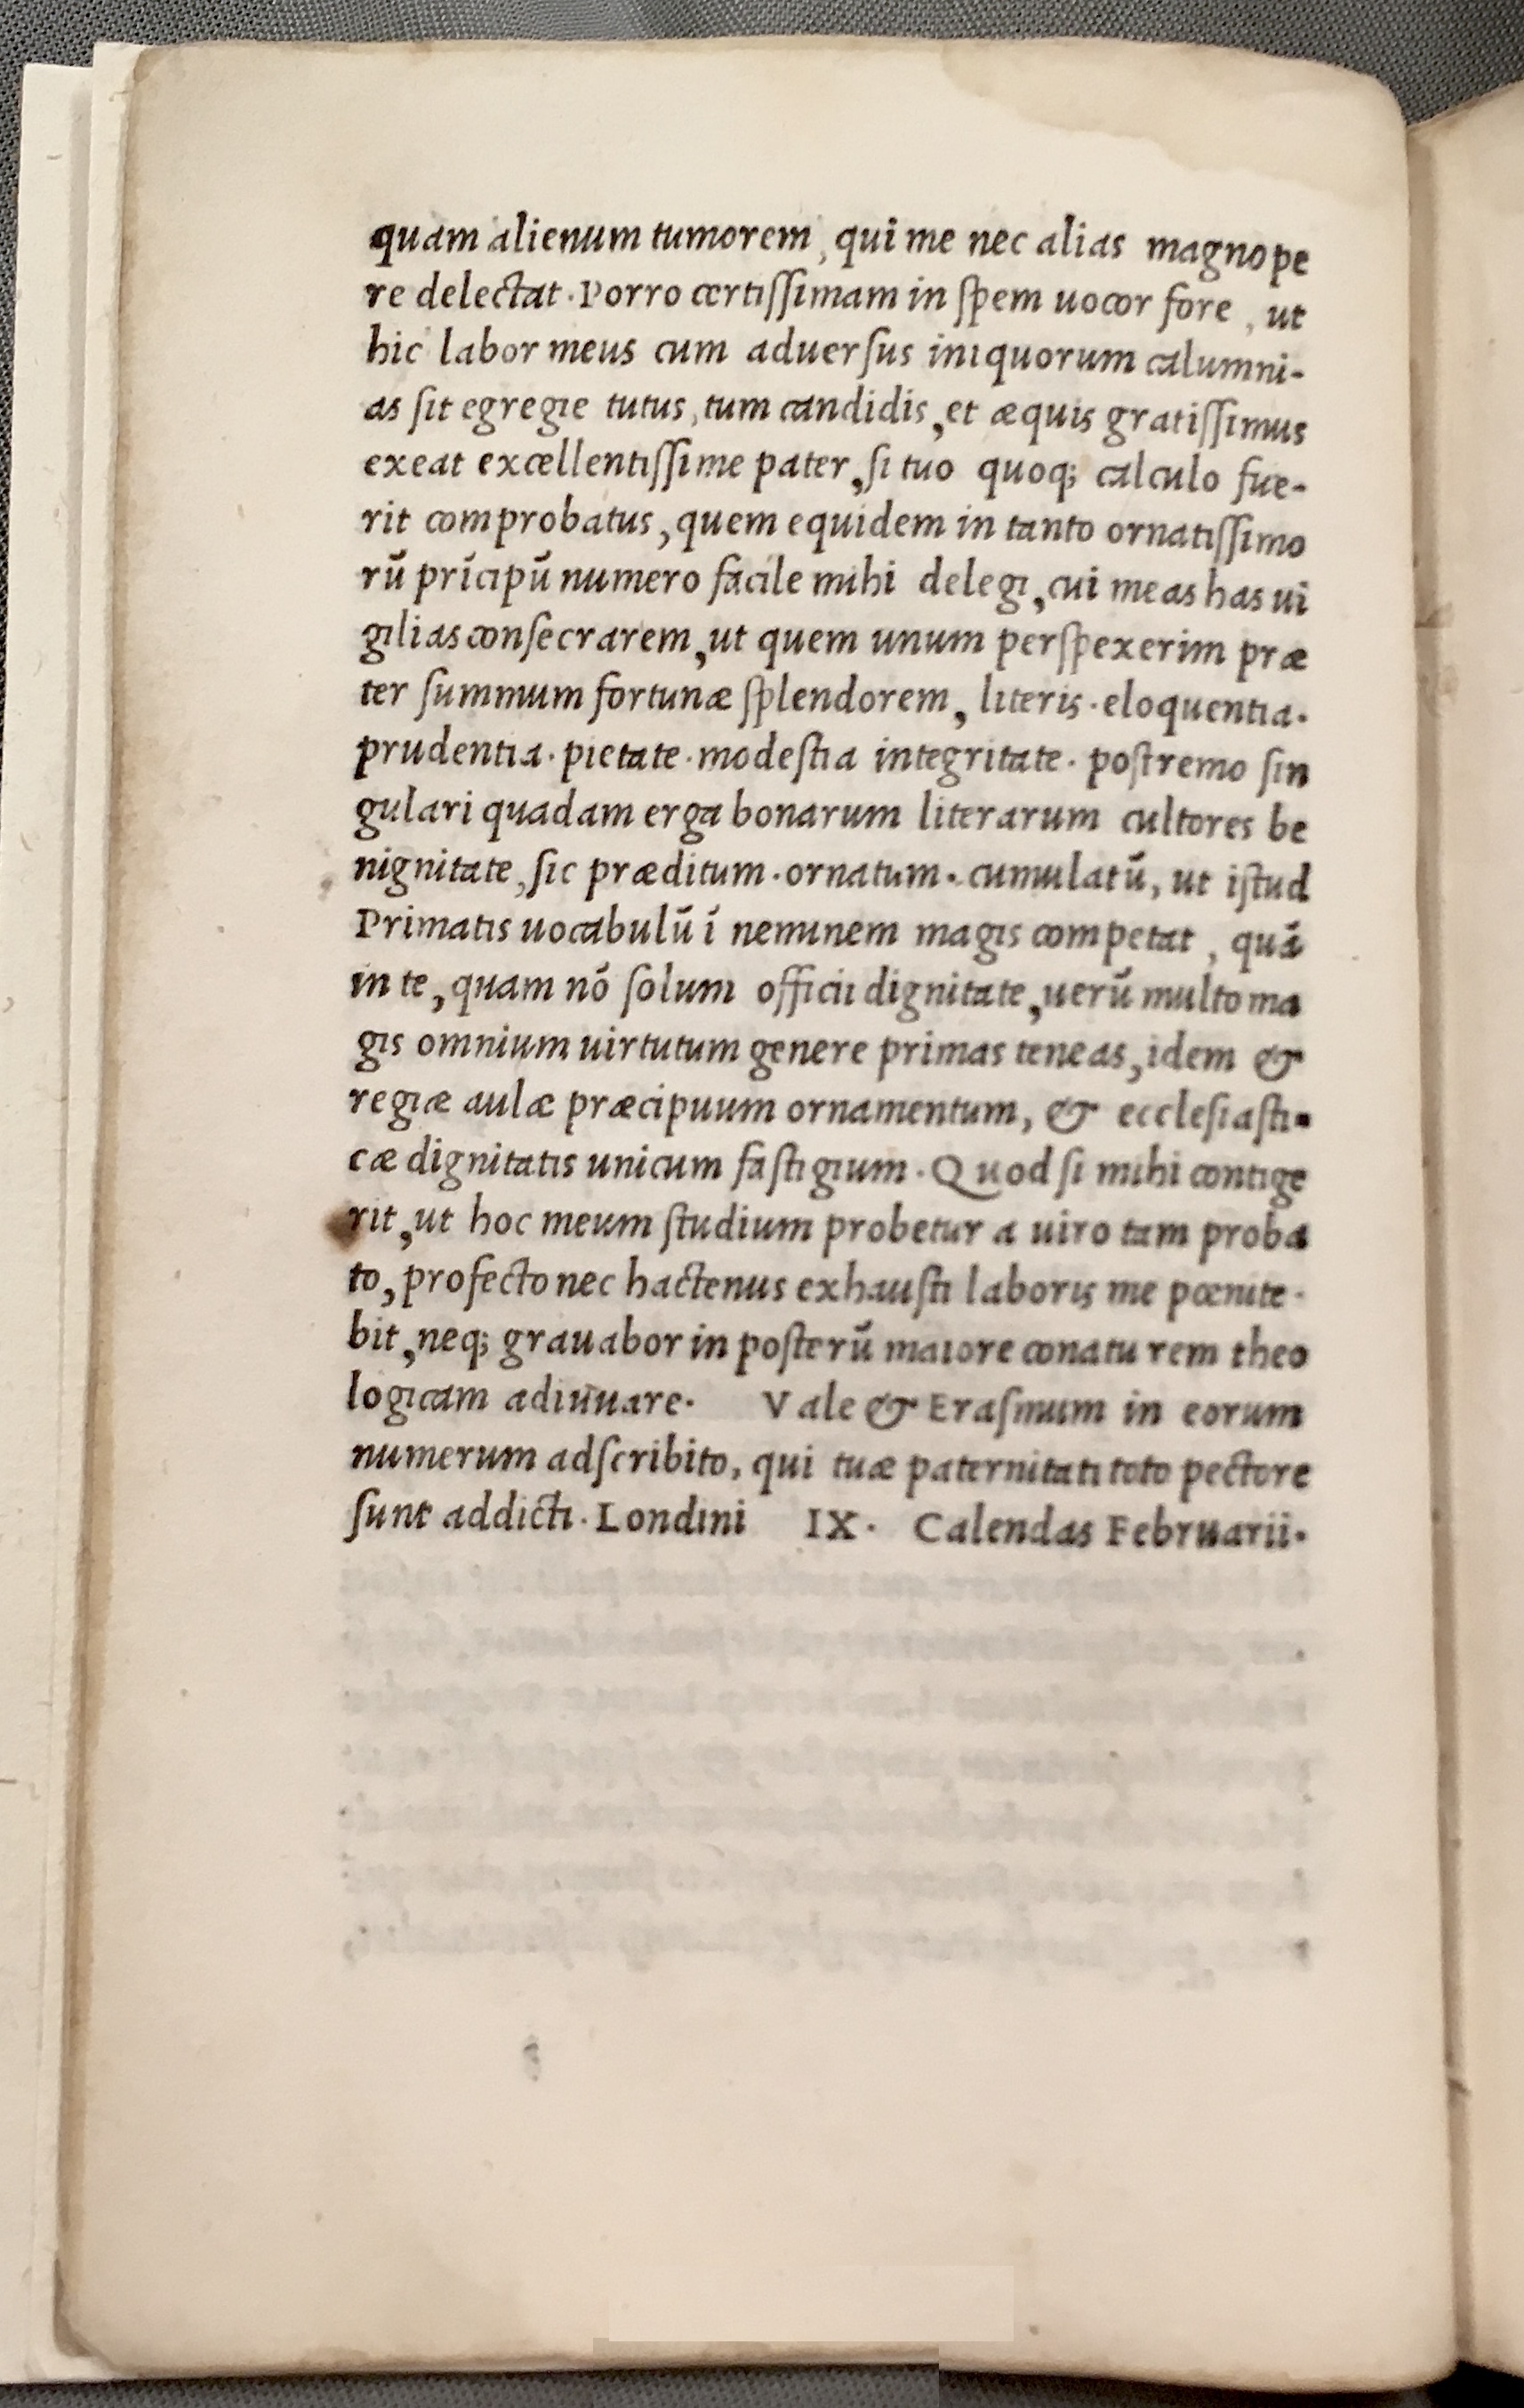 quam alienum tumorem, qui me nec alias magnope
re delectat. Porro certiſſimam in ſpem uocor fore, ut
hic labor meus cum aduerſus iniquorum calumni-
as ſit egregie tutus, tum candidis, et æquis gratiſſimus
exeat excellentiſſime pater, ſi tuo quoq; calculo fue-
rit comprobatus, quem equidem in tanto ornatiſſimo
rū prīcipū numero facile mihi delegi, cui meas has ui
gilias conſecrarem, ut quem unum perſpexerim præ
ter ſummum fortunæ ſplendorem, literis. eloquentia.
prudentia. pietate. modeſtia integritate. poſtremo ſin
gulari quadam erga bonarum literarum cultores be
nignitate, ſic præditum. ornatum. cumulatū, ut iſtud
Primatis uocabulū ī neminem magis competat, quā
in te, quam nō ſolum officii dignitate, uerū multo ma
gis omnium uirtutum genere primas teneas, idem &
regiæ aulæ præcipuum ornamentum, & eccleſiaſti-
cæ dignitatis unicum faſtigium. Quod ſi mihi contige
rit, ut hoc meum ſtudium probetur a uiro tam proba
to, profecto nec hactenus exhauſti laboris me pœnite-
bit, neq; grauabor in poſterū maiore conatu rem theo
logicam adiuuare. Vale & Eraſmum in eorum
numerum adſcribito, qui tuæ paternitati toto pectore
ſunt addicti. Londini IX. Calendas Februarii.